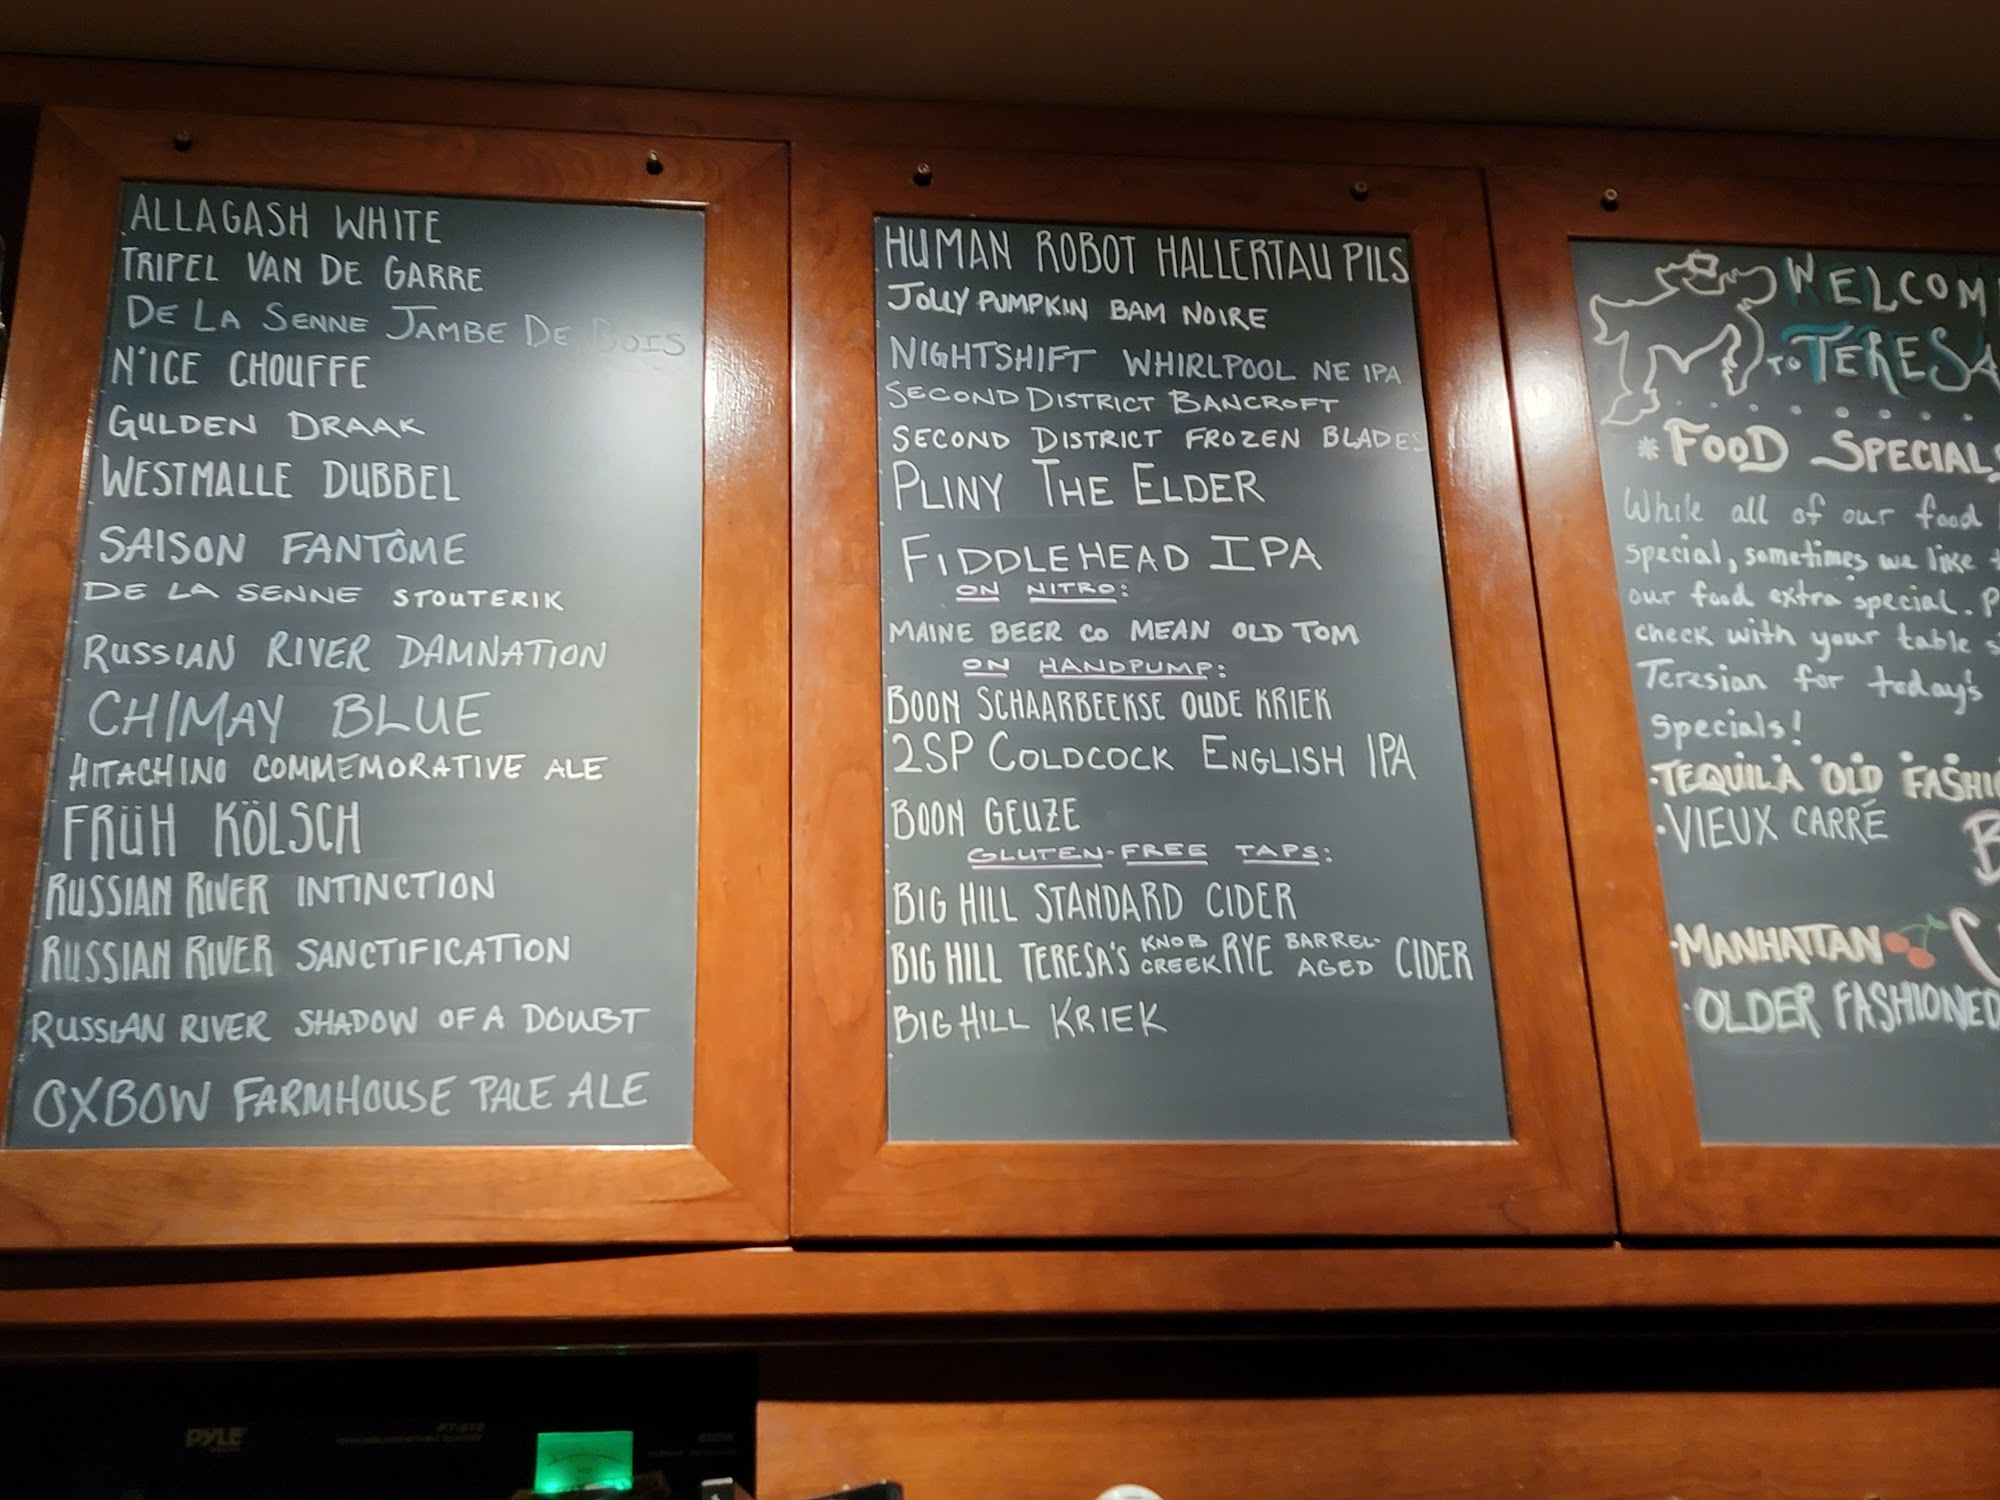 ALLAGASH WHITE
TRIPEL VAN DE GARRE
DE LA SENNE JAMBE DE BOIS
N'ICE CHOUFFE
GULDEN DRAAK
WESTMALLE DUBBEL
SAISON FANTÔME
DE LA SENNE STOUTERIK
RUSSIAN RIVER DAMNATION
CHIMAY BLUE
HITACHINO COMMEMORATIVE ALE
FRÜH KÖLSCH
RUSSIAN RIVER INTINCTION
RUSSIAN RIVER SANCTIFICATION
RUSSIAN RIVER SHADOW OF A DOUBT
OXBOW FARMHOUSE PALE ALE
HUMAN ROBOT HALLERTAU PILS
JOLLY PUMPKIN BAM NOIRE
NIGHTSHIFT WHIRLPOOL NE IPA
SECOND DISTRICT BANCROFT
SECOND DISTRICT FROZEN BLADES
PLINY THE ELDER
FIDDLEHEAD IPA
ON NITRO:
MAINE BEER CO MEAN OLD TOM
ON HANDPUMP:
BOON SCHAARBEEKSE OUDE KRIEK
2SP COLDCOCK ENGLISH IPA
BOON GEUZE
GLUTEN-FREE TAPS:
BIG HILL STANDARD CIDER
BIG HILL TERESA'S KNOB CREEK RYE BARREL-AGED CIDER
BIG HILL KRIEK
WELCOM
TO TERESA
* FOOD SPECIALS
While all of our food
special, sometimes we like
our food extra special.
check with your table
Teresian for today's
specials!
·TEQUILA OLD FASHI
·VIEUX CARRÉ
·MANHATTAN
·OLDER FASHIONED
PYLE